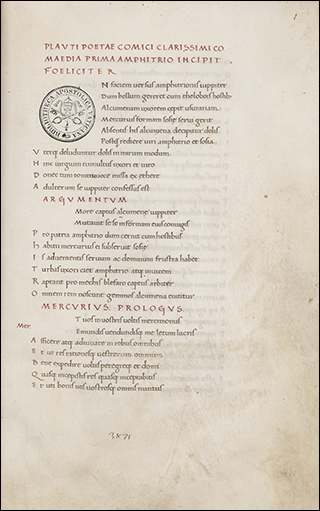 1
PLAVTI POETAE COMICI CLARISSIMI CO
MAEDIA PRIMA AMPHITRIO INCIPIT
FOELICITER
BIBLIOTHECA APOSTOLICA VATICANA
N faciem versus amphitrionis iuppiter
Dum bellum gereret cum theleboes hostib;
Alcumenam uxorem cepit usurariam.
Mercurius formam sosię serui gerit
Absentis his alcumena decipitur dolis
Postq; rediere ueri amphitrio et sosia
V terq; deluduntur dolis in mirum modum.
H inc iurgium tumultus uxori et uiro
D onec cum tonitru uoce missa ex ethere
A dulterum se iuppiter confessus est.
ARGVMENTVM
More captus alcumene iuppiter
Mutauit sese in formam eius coniugis
P ro patria amphitrio dum cernit cum hostibus.
H abitu mercurius ei subseruit sosię
I s aduenientis seruum ac dominum frustra habet
T urbas uxori ciet amphitrio atq; inuicem
R aptant pro mechis blefaro captus arbiter
O mnem rem noscunt geminos alcumena enititur
MERCVRIVS PROLOGVS
Mer.
T uos in uostris uoltis mercimoniis
Emundis uendundisq; me letum lucris
A fficere atq; adiuuare in rebus omnibus
E t ut res rationesq; uestrorum omnium
B ene expedire uoltis peregreq; et domi
Q uasq; incepistis res quasq; inceptabitis
E t uti bonis uos uostrosq; omnis nuntiis
3871